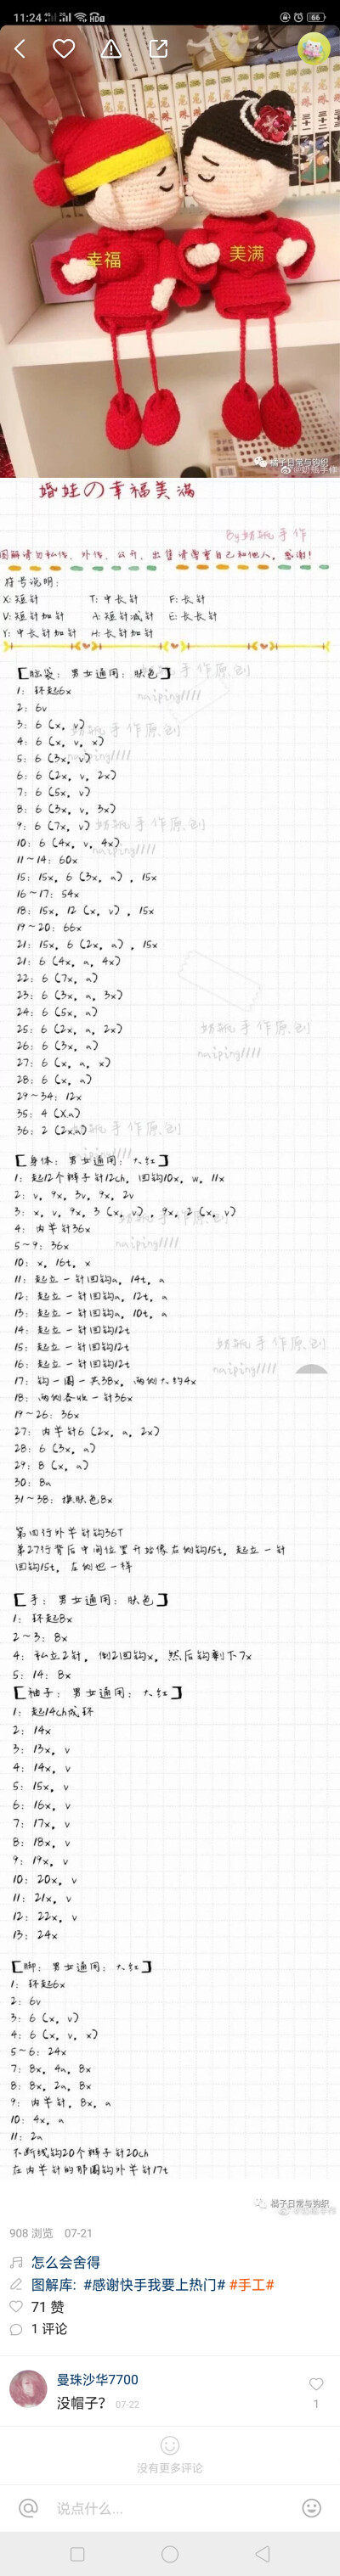 11:24
66
幸福
美满
橘子日常与钩织
婚娃の幸福美满
符号说明:
X: 短针 T: 中长针 F: 长针
V: 短针加针 A: 短针减针 E: 长长针
Y: 中长针加针 H: 长针加针
【脑袋: 男女通用: 肤色】
1: 环起6x
2: 6v
3: 6 (x, v)
4: 6 (x, v, x)
5: 6 (3x, v)
6: 6 (2x, v, 2x)
7: 6 (5x, v)
8: 6 (3x, v, 3x)
9: 6 (7x, v)
10: 6 (4x, v, 4x)
11~14: 60x
15: 15x, 6 (3x, a), 15x
16~17: 54x
18: 15x, 12 (x, v), 15x
19~20: 66x
21: 15x, 6 (2x, a), 15x
21: 6 (4x, a, 4x)
22: 6 (7x, a)
23: 6 (3x, a, 3x)
24: 6 (5x, a)
25: 6 (2x, a, 2x)
26: 6 (3x, a)
27: 6 (x, a, x)
28: 6 (x, a)
29~34: 12x
35: 4 (x.a)
36: 2 (2x.a)
【身体: 男女通用: 大红】
1: 起12个辫子针12ch, 回钩10x, w, 11x
2: v, 9x, 3v, 9x, 2v
3: x, v, 9x, 3 (x, v), 9x, 2 (x, v)
4: 内半针36x
5~9: 36x
10: x, 16t, x
11: 起立一针回钩a, 14t, a
12: 起立一针回钩a, 12t, a
13: 起立一针回钩a, 10t, a
14: 起立一针回钩12t
15: 起立一针回钩12t
16: 起立一针回钩12t
17: 钩一圈一共38x, 两侧大约4x
18: 两侧各收一针36x
19~26: 36x
27: 内半针6 (2x, a, 2x)
28: 6 (3x, a)
29: 8 (x, a)
30: 8a
31~38: 换肤色8x
第四行外半针钩36T
第27行背后中间位置开始像左侧钩15t, 起立一针
回钩15t, 左侧也一样
【手: 男女通用: 肤色】
1: 环起8x
2~3: 8x
4: 起立2针, 倒2回钩x, 然后钩剩下7x
5: 14: 8x
【袖子: 男女通用: 大红】
1: 起14ch成环
2: 14x
3: 13x, v
4: 14x, v
5: 15x, v
6: 16x, v
7: 17x, v
8: 18x, v
9: 19x, v
10: 20x, v
11: 21x, v
12: 22x, v
13: 24x
【脚: 男女通用: 大红】
1: 环起6x
2: 6v
3: 6 (x, v)
4: 6 (x, v, x)
5~6: 24x
7: 8x, 4a, 8x
8: 8x, 2a, 8x
9: 内半针, 8x, a
10: 4x, a
11: 2a
不断线钩20个辫子针20ch
在内半针的那圈钩外半针17t
橘子日常与钩织
908 浏览 07-21
怎么会舍得
图解库: #感谢快手我要上热门# #手工#
71 赞
1 评论
曼珠沙华7700
没帽子? 07-22
1
没有更多评论
说点什么...